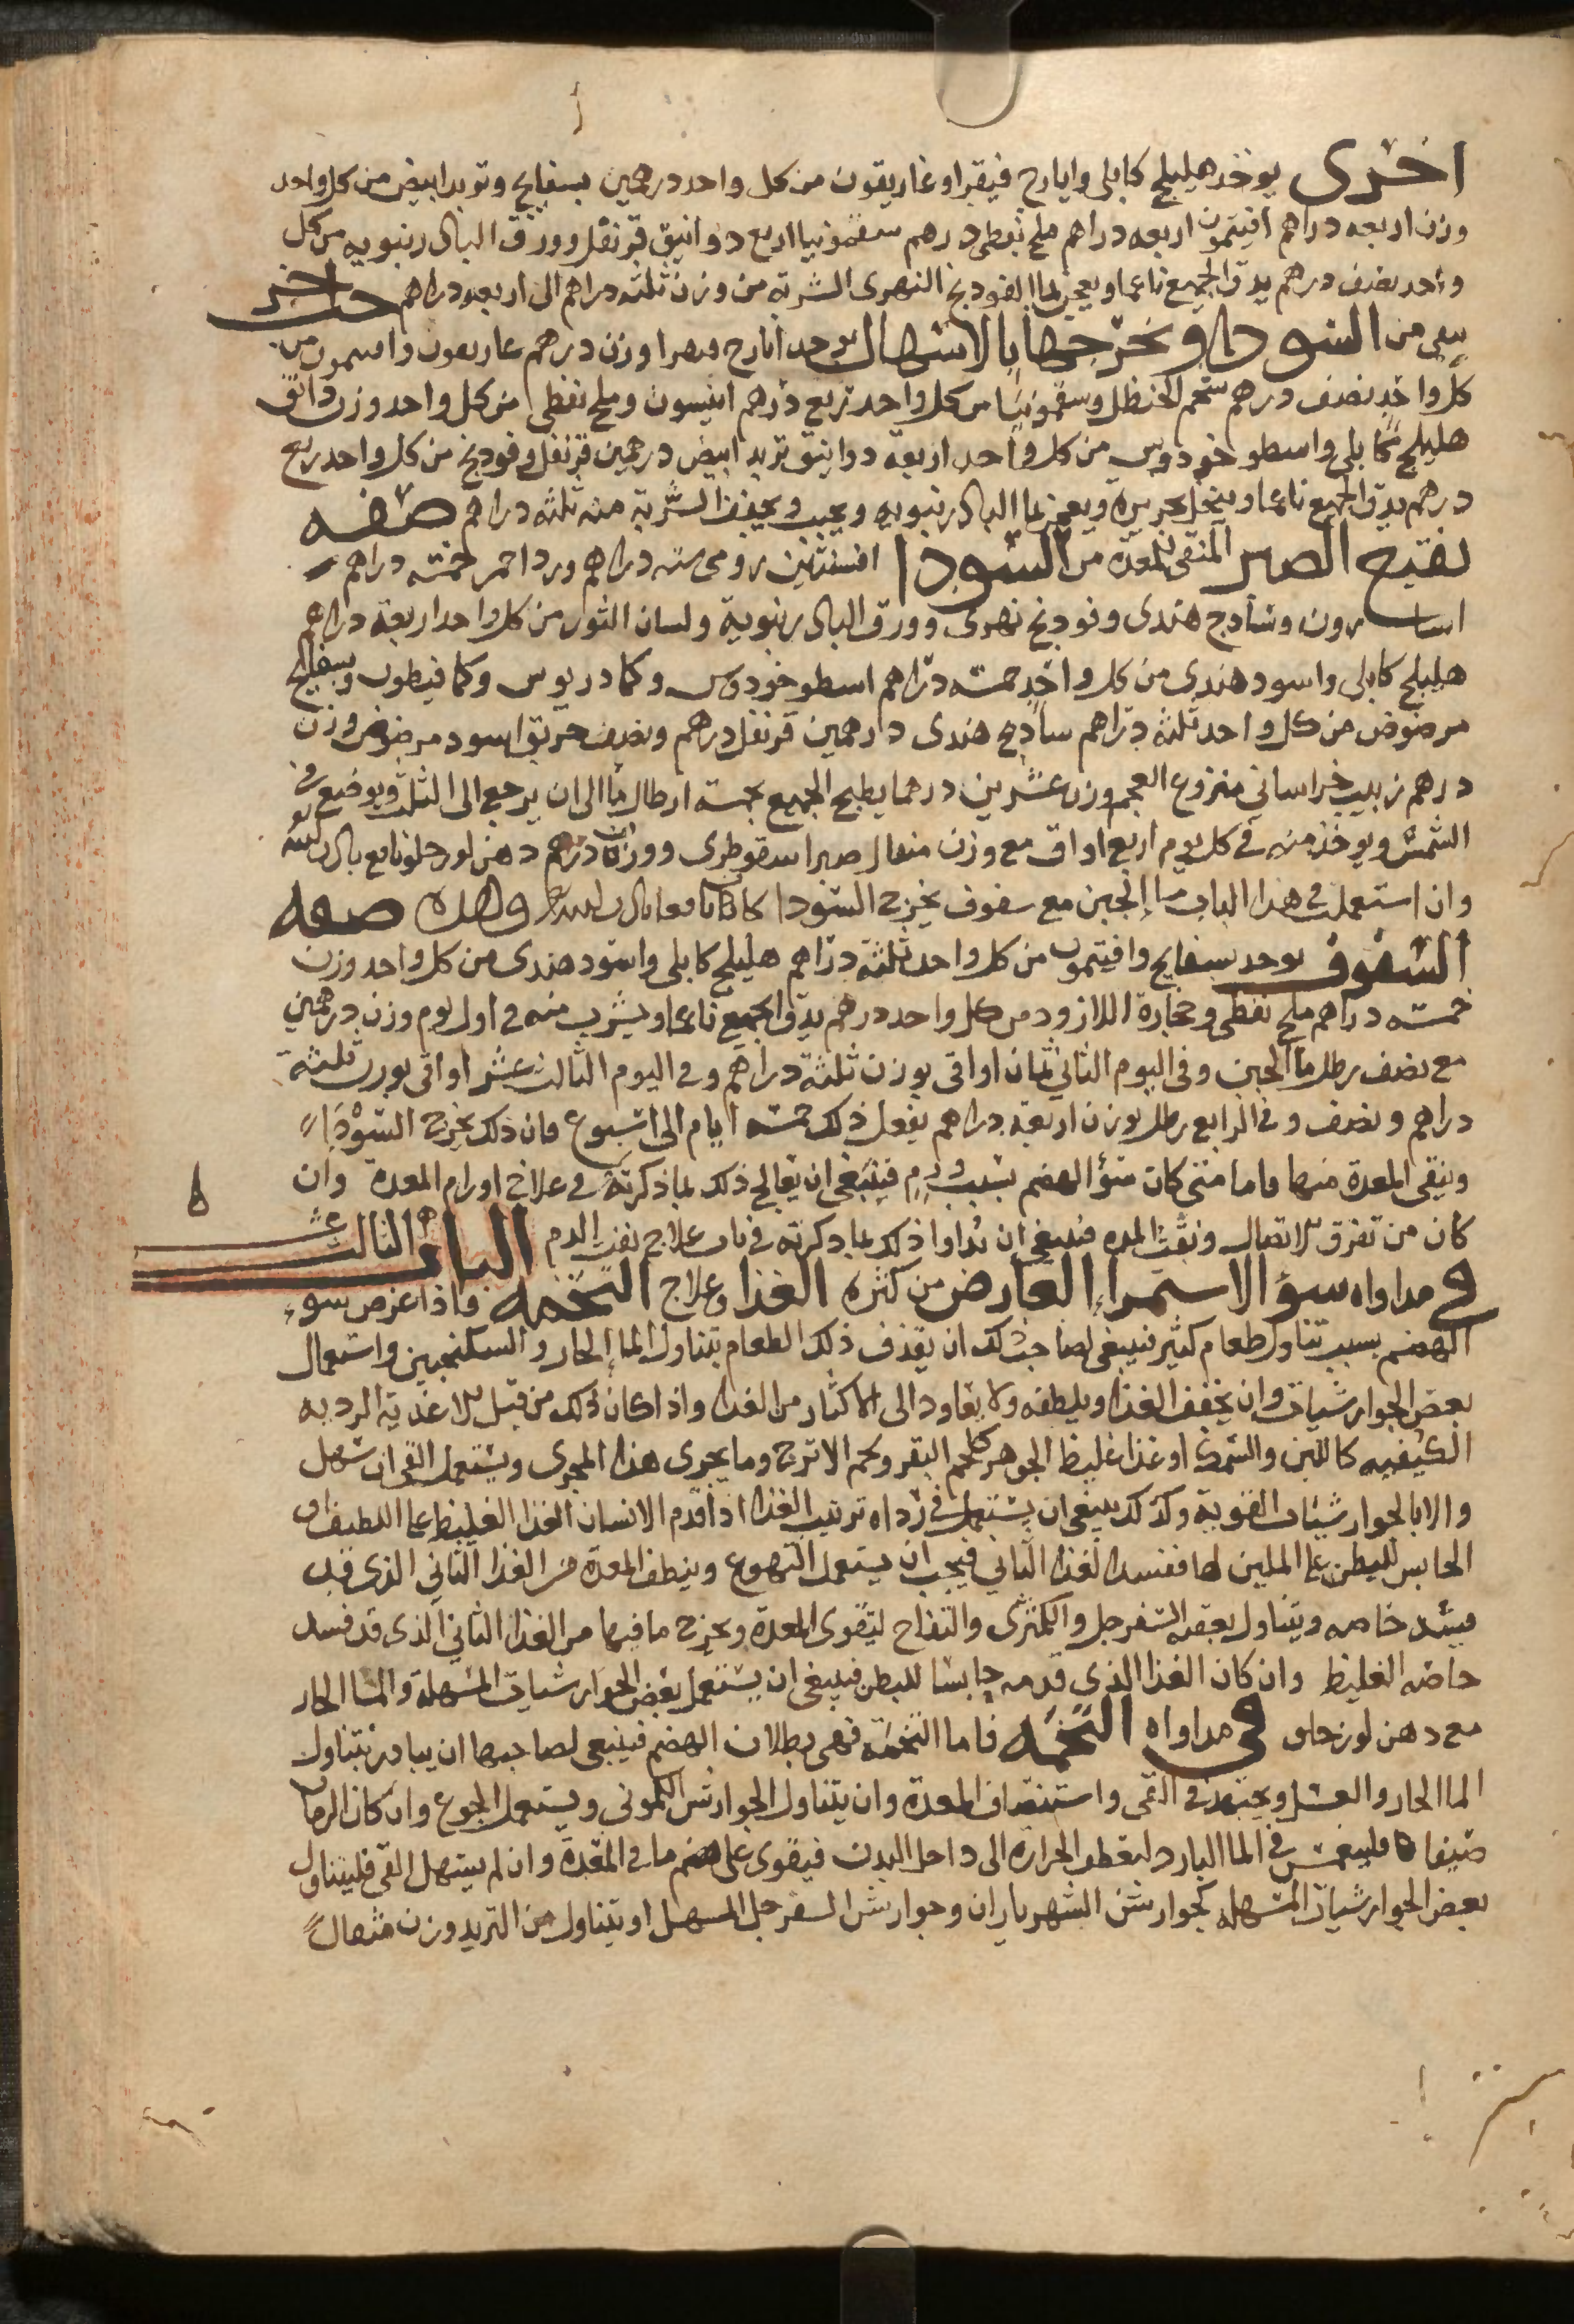 اخرى يوخذ هليلج كابلى وايارج فيقرا وغاريقون من كل واحد درهمين بسفايج وتربد ابيض من كل واحد
وزن اربعه دراهم افيتمون اربعه دراهم ملح نفطى درهم سقمونيا اربع دوانيق قرنفل وورق البادرنبويه من كل
واحد نصف درهم يدق الجميع ناعما ويعجن بما الفودنج النهرى الشربه من وزن ثلثه دراهم الى اربعه دراهم حب اخر
ينقى من السودا ويخرجها بالاسهال يوخذ ايارج فيقرا وزن درهم غاريقون وافتيمون من
كل واحد نصف درهم شحم الحنظل وسقمونيا من كل واحد ربع درهم انيسون وملح نفطى من كل واحد وزن دانق
هليلج كابلى واسطوخودوس من كل واحد اربعة دوانيق تربد ابيض درهمين قرنفل وفودنج من كل واحد ربع
درهم يدق الجميع ناعما وينخل بحريره ويعجن بما البادرنبويه ويحبب ويجفف الشربة منه ثلثه دراهم صفه
نقيع الصبر المنقى للمعدة من السودا افسنتين رومى سته دراهم ورد احمر خمسه دراهم
اسارون وسادج هندى وفودنج نهرى وورق البادرنبوية ولسان الثور من كل واحد اربعة دراهم
هليلج كابلى واسود هندى من كل واحد خمسه دراهم اسطوخودوس وكمادريوس وكمافيطوس وبسفايج
مرضوض من كل واحد ثلثه دراهم سادج هندى درهمين قرنفل درهم ونصف خربق اسود مرضوض وزن
درهم زبيب خراسانى منزوع العجم وزن عشرين درهما يطبخ الجميع بخمسة ارطال ما الى ان يرجع الى الثلث ويوضع فى
الشمس ويوخذ منه فى كل يوم اربع اواق مع وزن مثقال صبر اسقوطرى ووزن درهم دهن لوز حلو
وان استعملت فى هذا الباب ما الجبن مع سفوف يخرج السودا كان نافعا وهذه صفه
السفوف يوخذ بسفايج وافيتمون من كل واحد ثلثة دراهم هليلج كابلى واسود هندى من كل واحد وزن
خمسه دراهم ملح نفطى وحجارة اللازورد من كل واحد درهم يدق الجميع ناعما ويشرب منه فى اول يوم وزن درهمين
مع نصف رطل ما الجبن وفى اليوم الثانى ثمان اواقى بوزن ثلثة دراهم وفى اليوم الثالث عشر اواقى بوزن ثلثة
دراهم ونصف وفى الرابع رطل بوزن اربعة دراهم يفعل ذلك خمسه ايام الى اسبوع فان ذلك يخرج السودا
وينقى المعدة منها فاما متى كان سؤ الهضم بسبب ورم فينبغى ان يعالج ذلك بما ذكرته فى علاج اورام المعدة وان
كان من تفرق الاتصال ونفث المده فينبغى ان تداوا ذلك بما ذكرته فى باب علاج نفث الدم الباب الثالث عشر
فى مداواه سؤ الاستمرا العارض من كثرة الغذا وعلاج التخمه فاذا عرض سوء
الهضم بسبب تناول طعام كثير فينبغى لصاحب ذلك ان يقذف ذلك الطعام بتناول الما الحار والسكنجبين واستعمال
بعض الجوارشيات وان يخفف الغذا ويلطفه ولا يعاود الى الاكثار من الغذا واذا كان ذلك من قبل الاغذية الرديه
الكيفيه كاللبن والسمك او غذا غليظ الجوهر كلحم البقر ولحم الاترج وما يجرى هذا المجرى ويستعمل القى ان سهل
والا بالجوارشيات القوية وكذلك ينبغى ان يستعمل فى رداه ترتيب الغذا اذا قدم الانسان الغذا الغليظ على اللطيف او
الحابس للبطن على الملين لها ففسد الغذا الثانى فيجب ان يستعمل التهوع وينظف المعدة من الغذا الثانى الذى قد
فسد خاصه ويتناول بعقبه السفرجل والكمثرى والتفاح لتقوى المعدة ويخرج ما فيها من الغذا الثانى الذى قد فسد
خاصه الغليظ وان كان الغذا الذى قدمه حابسا للبطن فينبغى ان يستعمل بعض الجوارشيات المسهلة والما الحار
مع دهن لوز حلو فى مداواه التخمه فاما التخمه فهى بطلان الهضم فينبغى لصاحبها ان يبادر بتناول
الما الحار والعسل ويجتهد فى القى واستنظاف المعدة وان يتناول الجوارش الكمونى ويستعمل الجوع وان كان الزمان
صيفا فليغمس فى الما البارد لتغطس الحرارة الى داخل البدن فيقوى على هضم ما فى المعدة وان لم يسهل القى فليتناول
بعض الجوارشيات المسهله كجوارش الشهرياران وجوارش السفرجل المسهل او يتناول من التربد وزن مثقال